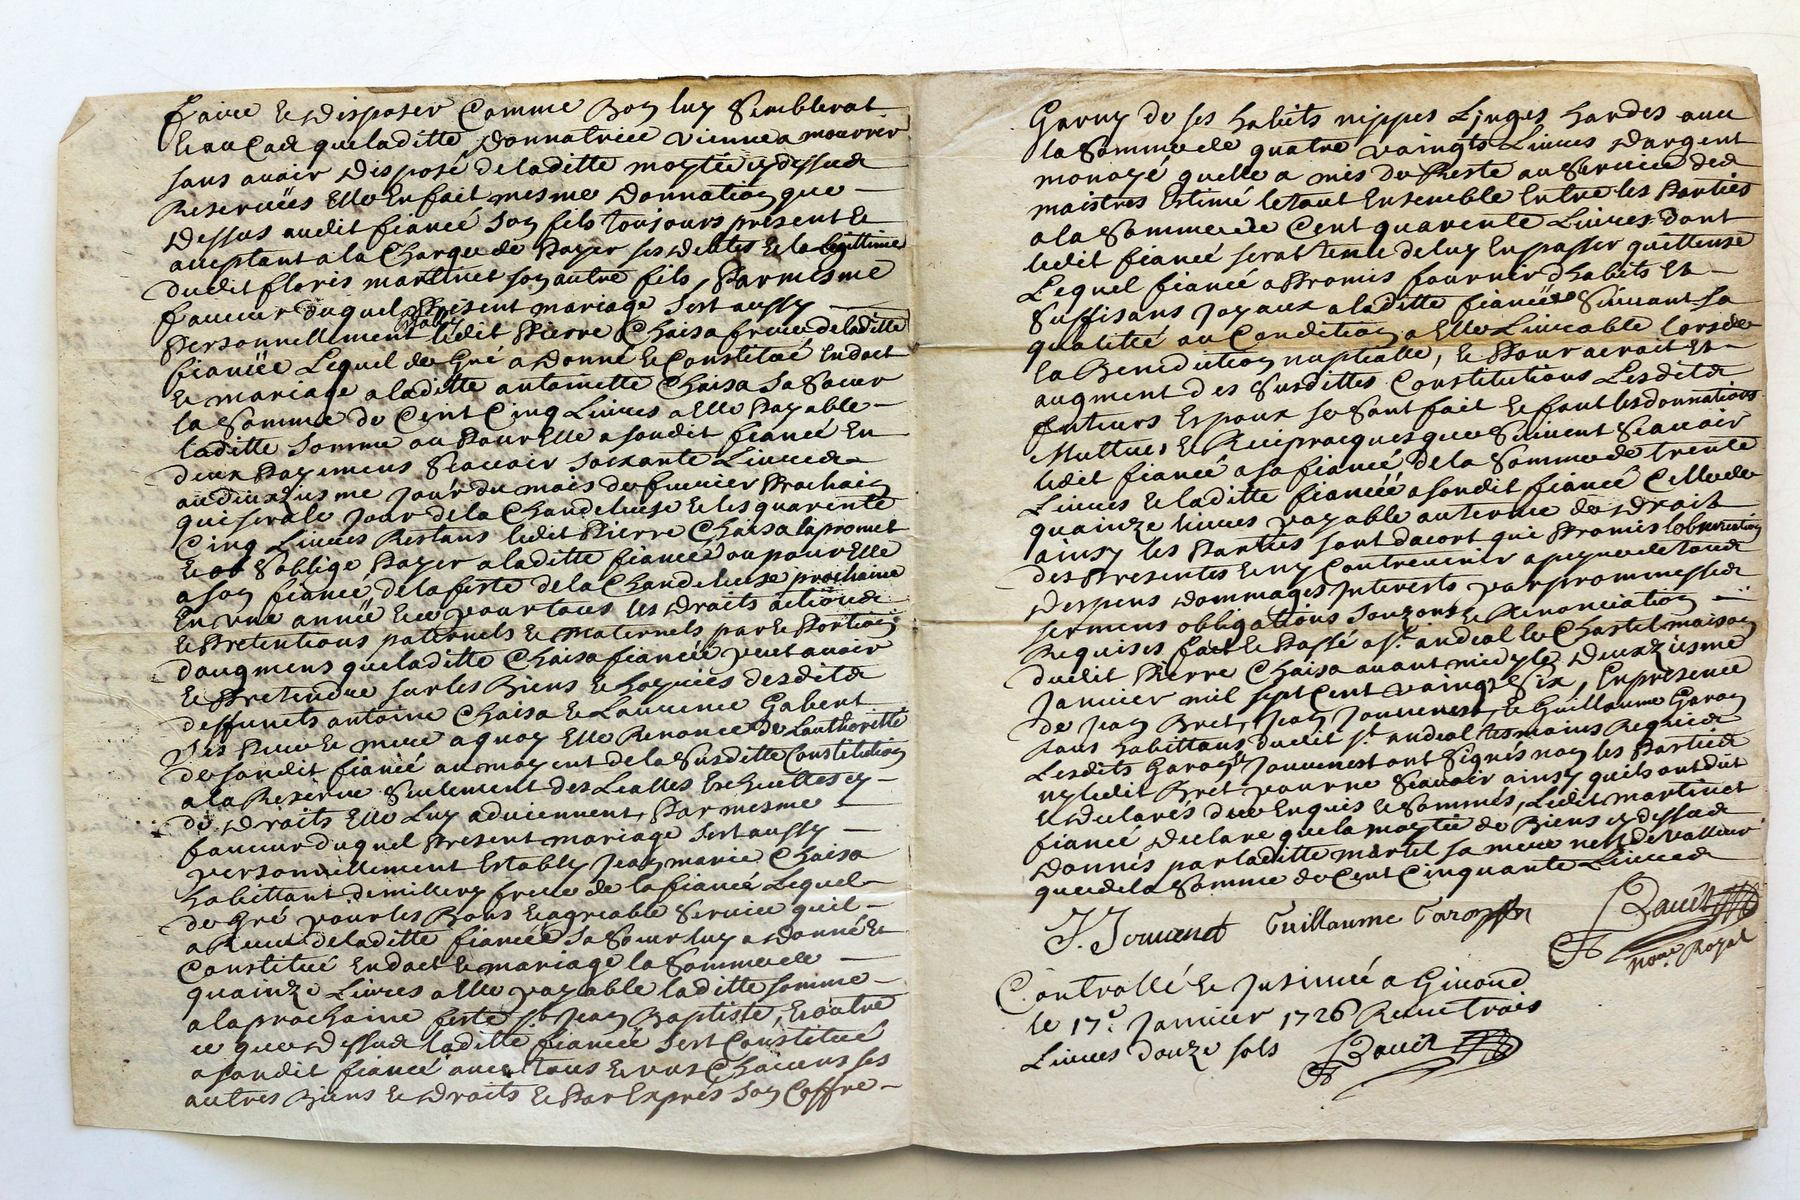 faire et disposer Comme Bon luy Semblerat
Et au Cas que laditte donnatrice vienne a mourrir
sans avoir disposé de laditte moytié cy dessus
Reservées Elle En fait mesme donnation que
dessus audit fiancé son fils toujours présent et
aceptant a la Charge de Payer ses debtes et la legittime
dudit floris martinet son autre fils, Par mesme
faveur duquel Présent mariage sert aussy
Personnellement ledit Pierre Chaisa frere de laditte
fiancée Lequel de Gré a donné et Constitué En dot
et mariage a laditte antoinette Chaisa sa Soeur
la Somme de Cent Cinq Livres a Elle Payable
laditte somme ou Pour Elle a sondit fiancé En
deux Payemens Scavoir soixante Livres
au deuxziesme jour du mois de fevrier Prochain
qui sera le jour de la Chandeleuse et les quarente
Cinq Livres Restans ledit Pierre Chaisa la promet
et s'oblige Payer a laditte fiancée ou pour Elle
a son fiancé de la feste de la Chandeleuse prochaine
En une année et ce pour tous les droits actions
et Pretentions paternels et maternels part et Portion
daugmens que laditte Chaisa fiancée peut avoir
et Pretendre sur les Biens et hoyries desdits
deffunets antoine Chaisa et Laurence Gabert
ses Pere et mere a quoy Elle Renonce de Lauthorité
de sondit fiancé au moyent de la Susditte Constitution
a la Reserve Seulement des Loialles Escheuttes sy
de droits Elle Luy adviennent, Par mesme
faveur duquel Present mariage sert aussy
personnellement Estably Jean marie Chaisa
habittant de millery frere de la fiancée Lequel
de Gré pour les Bons et agreable Service quil
a Receu de laditte fiancée sa Soeur luy a donné et
Constitué En dot et mariage la Somme de
quainze Livres a Elle payable laditte somme
a la prochaine feste st Jean Baptiste, Et outre
ce que dessus laditte fiancée sest Constitué
a sondit fiancé avec tous et uns Chacuns ses
autres Biens et droits et Par Exprés son Coffre
Garny de ses habits nippes Linges hardes avec
la Somme de quatre vaingts Livres d'argent
monoyé quelle a mis du Reste au Service des
maistres Estimé le tout Ensemble Entre les Parties
a la Somme de Cent quarente Livres dont
ledit fiancé serat tenu de luy En passer quittense
Lequel fiancé a Promis fournir d'habits Et
Suffisans joyaux a laditte fiancée Suivant sa
qualitéé ou Condition a Elle Liuvable lors de
la Benediction nuptialle, et Pour acroit Et
augment des Susdittes Constitutions Lesdits
futeurs Espoux se Sont fait et font les donnations
Muttues et Reciproacques que Suivent Scavoir
ledit fiancé a sa fiancée de la Somme de trente
Livres et laditte fiancée a sondit fiancé Celle de
quainze livres payable au terme de droit
ainsy les Parties sont dacort qui Promis lobservation
des Presentes Et ny Contrevenir a peyne de tous
despens dommages Interests par prommesses
sermens obligations Renonciation
Requises fait et Passé a St andeol le Chastel maison
dudit Pierre Chaisa avant midy le deuxziesme
Janvier mil sept Cent vaingt six, En presence
de Jean Bret, Jean Jouvenest, et Guillaume Garon
tous habittans dudit st andeol tesmoins Requis
Lesdits Garon et Jouvenest ont Signés non les Parties
ny ledit Bret pour ne Scavoir ainsy quils ont dit
et declarés de ce Enquis et Sommés, Ledit martinet
fiancé declare que la moytié de Biens cy dessus
donnés par laditte martel sa mere nest de valleur
que de la Somme de Cent Cinquante Livres
J. Jouvenest Guillaume Garon
Notre Royal
Controllé et Insinué a Givord
le 17e. Janvier 1726 Receu trois
Livres douze sols